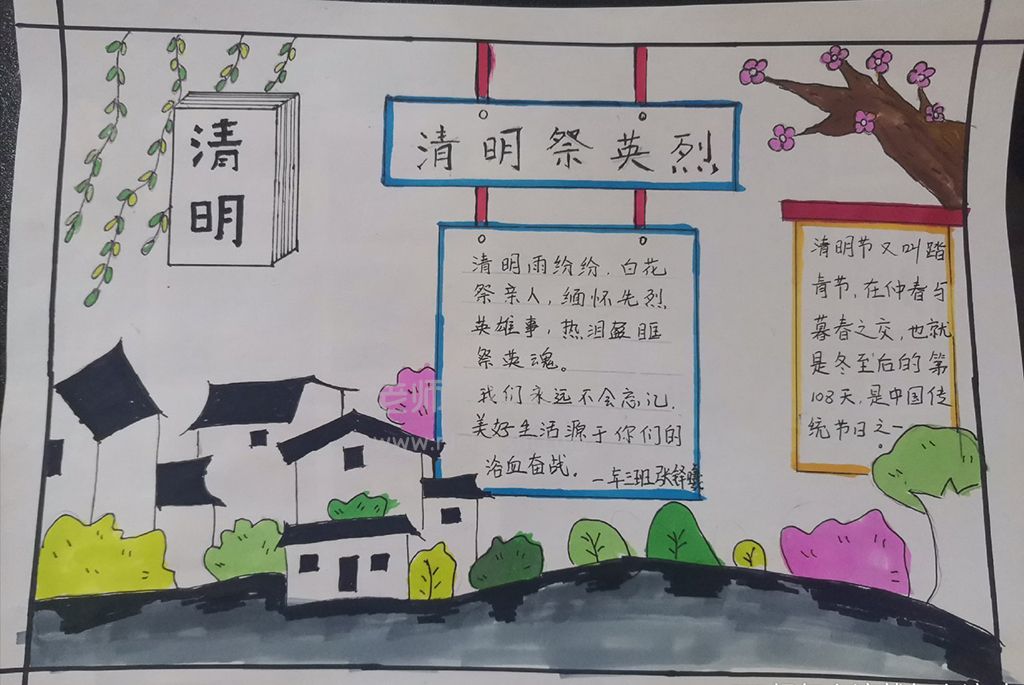 清
明
清明祭英烈
清明雨纷纷，白花
祭亲人，缅怀先烈
英雄事，热泪盈眶
祭英魂。
我们永远不会忘记，
美好生活源于你们的
浴血奋战。
一年二班张
清明节又叫踏
青节，在仲春与
暮春之交，也就
是冬至后的第
108天，是中国传
统节日之一。
老师
www.